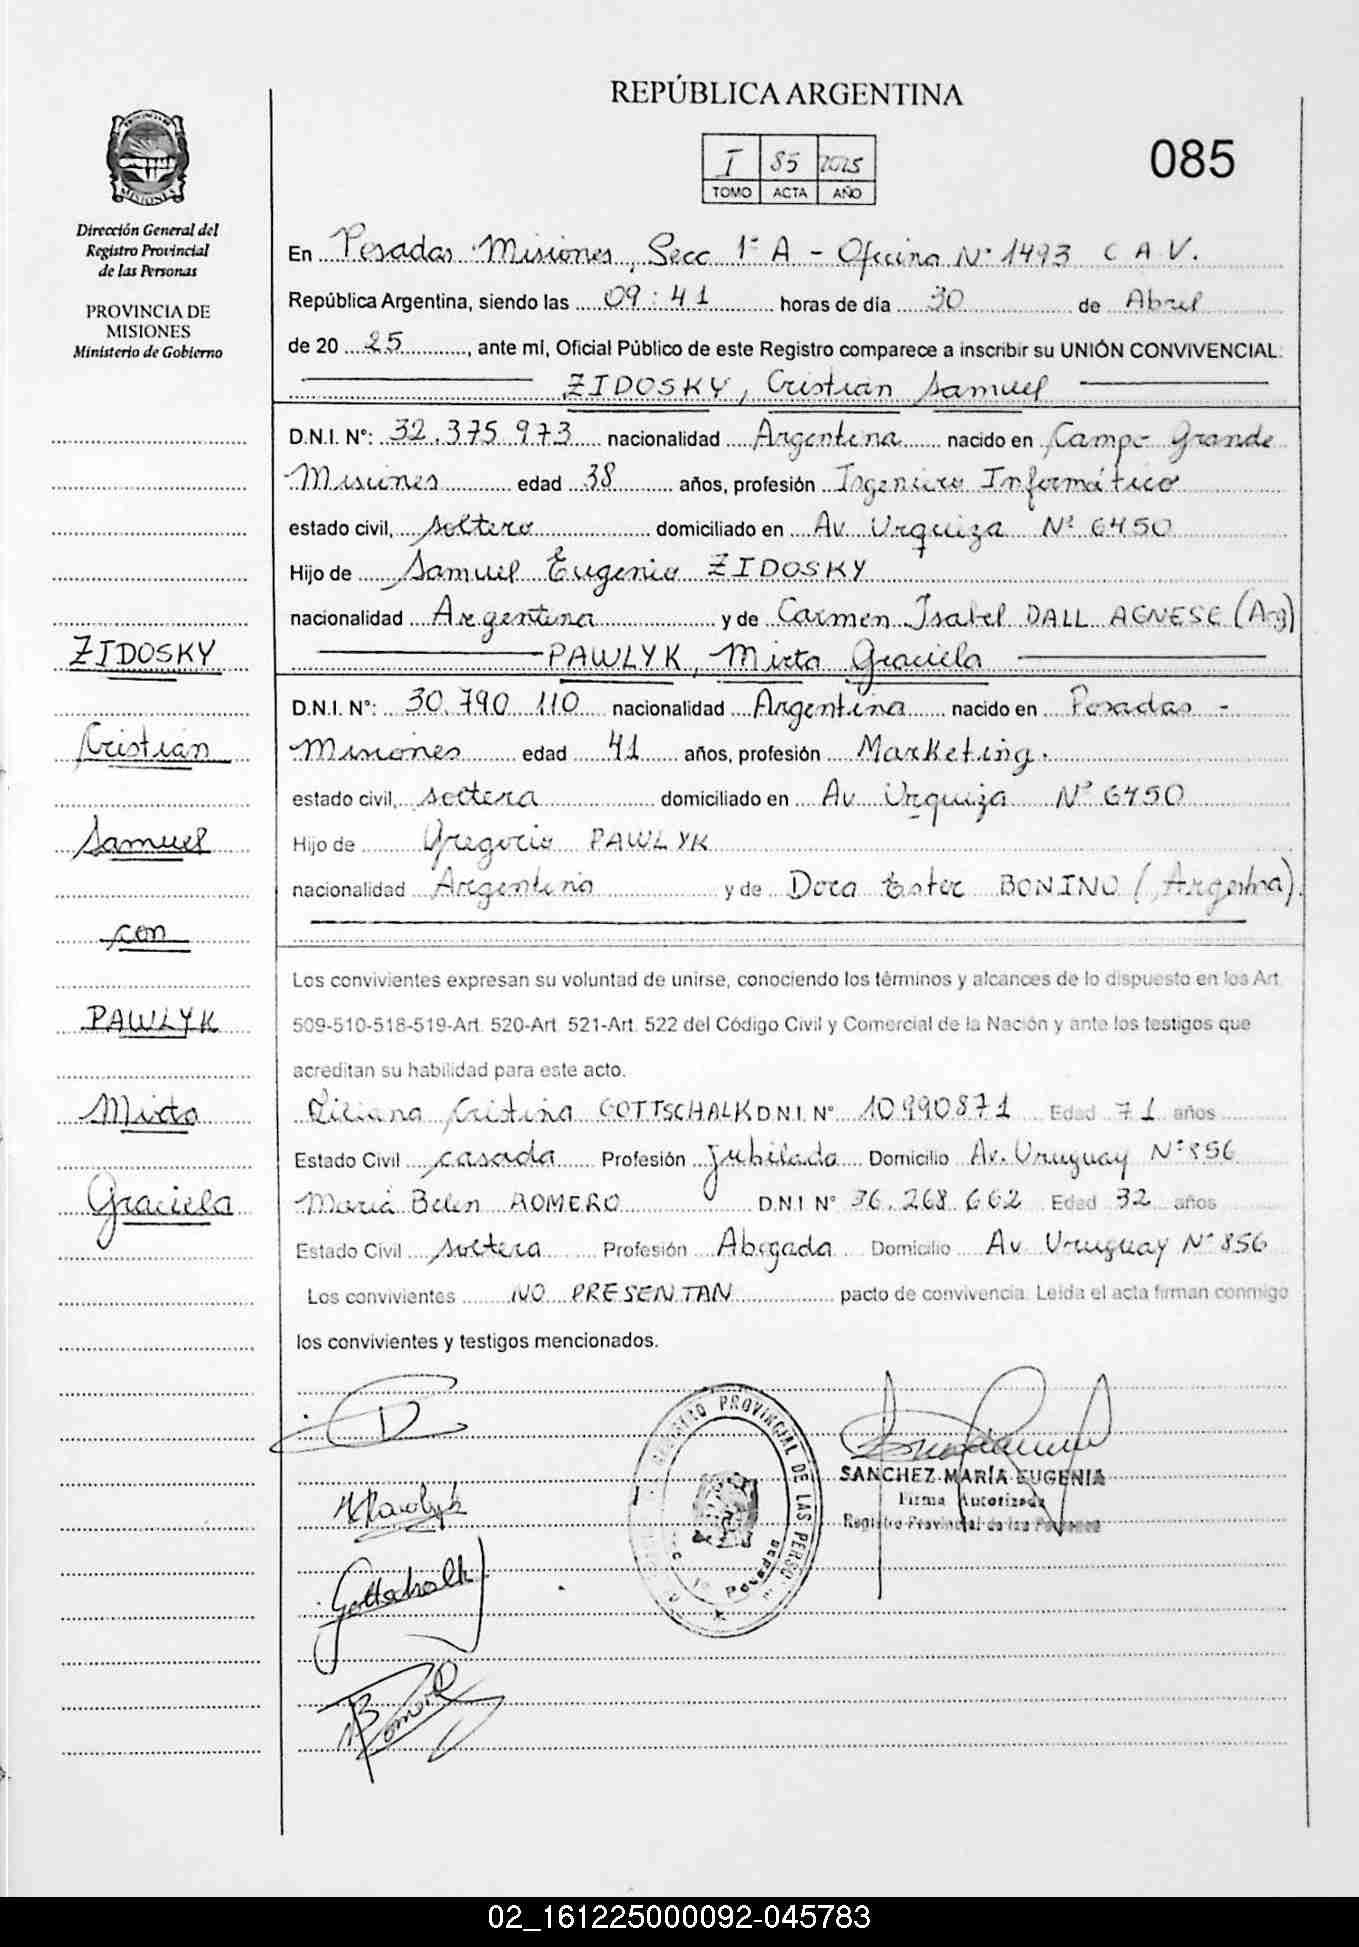 REPÚBLICA ARGENTINA
I 85 2025
TOMO ACTA AÑO
085
PROVINCIA DE
MISIONES
Dirección General del
Registro Provincial
de las Personas
PROVINCIA DE
MISIONES
Ministerio de Gobierno
ZIDOSKY
Cristian
Samuel
con
PAWLYK
Mirta
Graciela
En Posadas Misiones, Secc 1ª A - Oficina Nº 1493 C A V.
República Argentina, siendo las 09:41 horas de día 30 de Abril
de 20 25, ante mí, Oficial Público de este Registro comparece a inscribir su UNIÓN CONVIVENCIAL:
ZIDOSKY, Cristian Samuel
D.N.I. Nº: 32.375.973 nacionalidad Argentina nacido en Campo Grande
Misiones edad 38 años, profesión Ingeniero Informático
estado civil, soltero domiciliado en Av Urquiza Nº 6450
Hijo de Samuel Eugenio ZIDOSKY
nacionalidad Argentina y de Carmen Isabel DALL AGNESE (Arg)
PAWLYK, Mirta Graciela
D.N.I. Nº: 30.790.110 nacionalidad Argentina nacido en Posadas -
Misiones edad 41 años, profesión Marketing.
estado civil, soltera domiciliado en Av Urquiza Nº 6450
Hijo de Gregorio PAWLYK
nacionalidad Argentina y de Dora Ester BONINO (Argentina).
Los convivientes expresan su voluntad de unirse, conociendo los términos y alcances de lo dispuesto en los Art.
509-510-518-519-Art. 520-Art. 521-Art. 522 del Código Civil y Comercial de la Nación y ante los testigos que
acreditan su habilidad para este acto.
Liliana Cristina GOTTSCHALK D.N.I. Nº 10990871 Edad 71 años
Estado Civil casada Profesión Jubilada Domicilio Av. Uruguay Nº 856
Maria Belen ROMERO D.N.I Nº 36.268.662 Edad 32 años
Estado Civil soltera Profesión Abogada Domicilio Av Uruguay Nº 856
Los convivientes NO PRESENTAN pacto de convivencia. Leída el acta firman conmigo
los convivientes y testigos mencionados.
MPawlyk
Gottschalk
BRomero
REGISTRO PROVINCIAL DE LAS PERSO
Posadas
SANCHEZ MARÍA EUGENIA
Firma Autorizada
Registro Provincial de las Personas
02_161225000092-045783